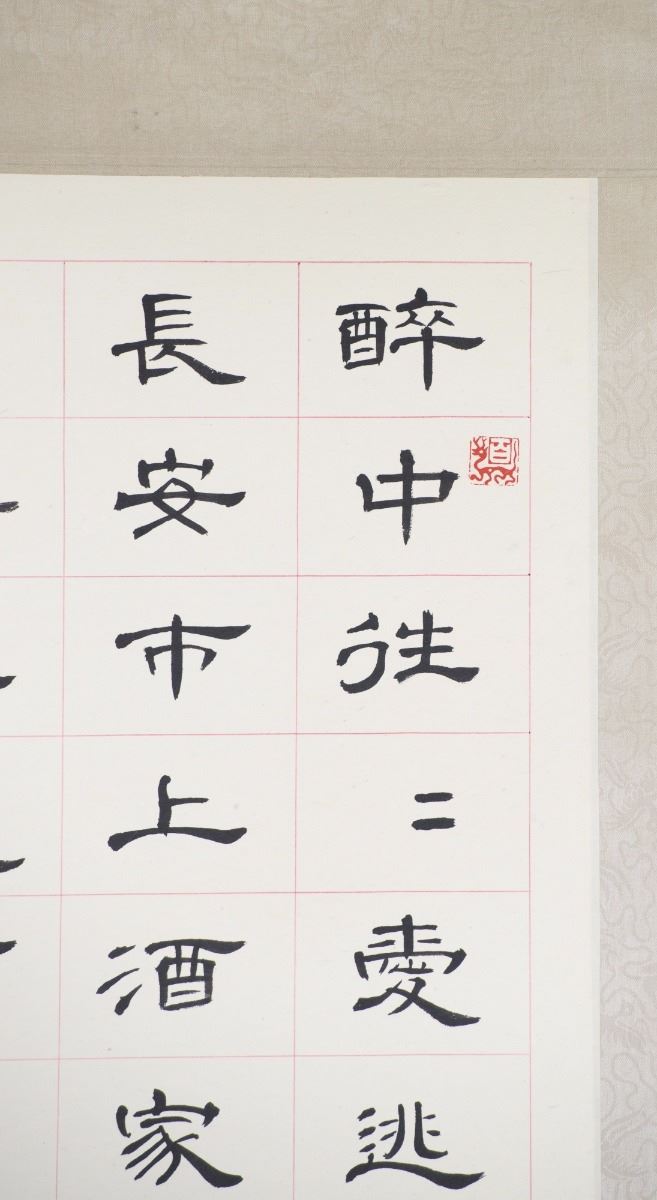 醉中往〻愛逃
長安市上酒家